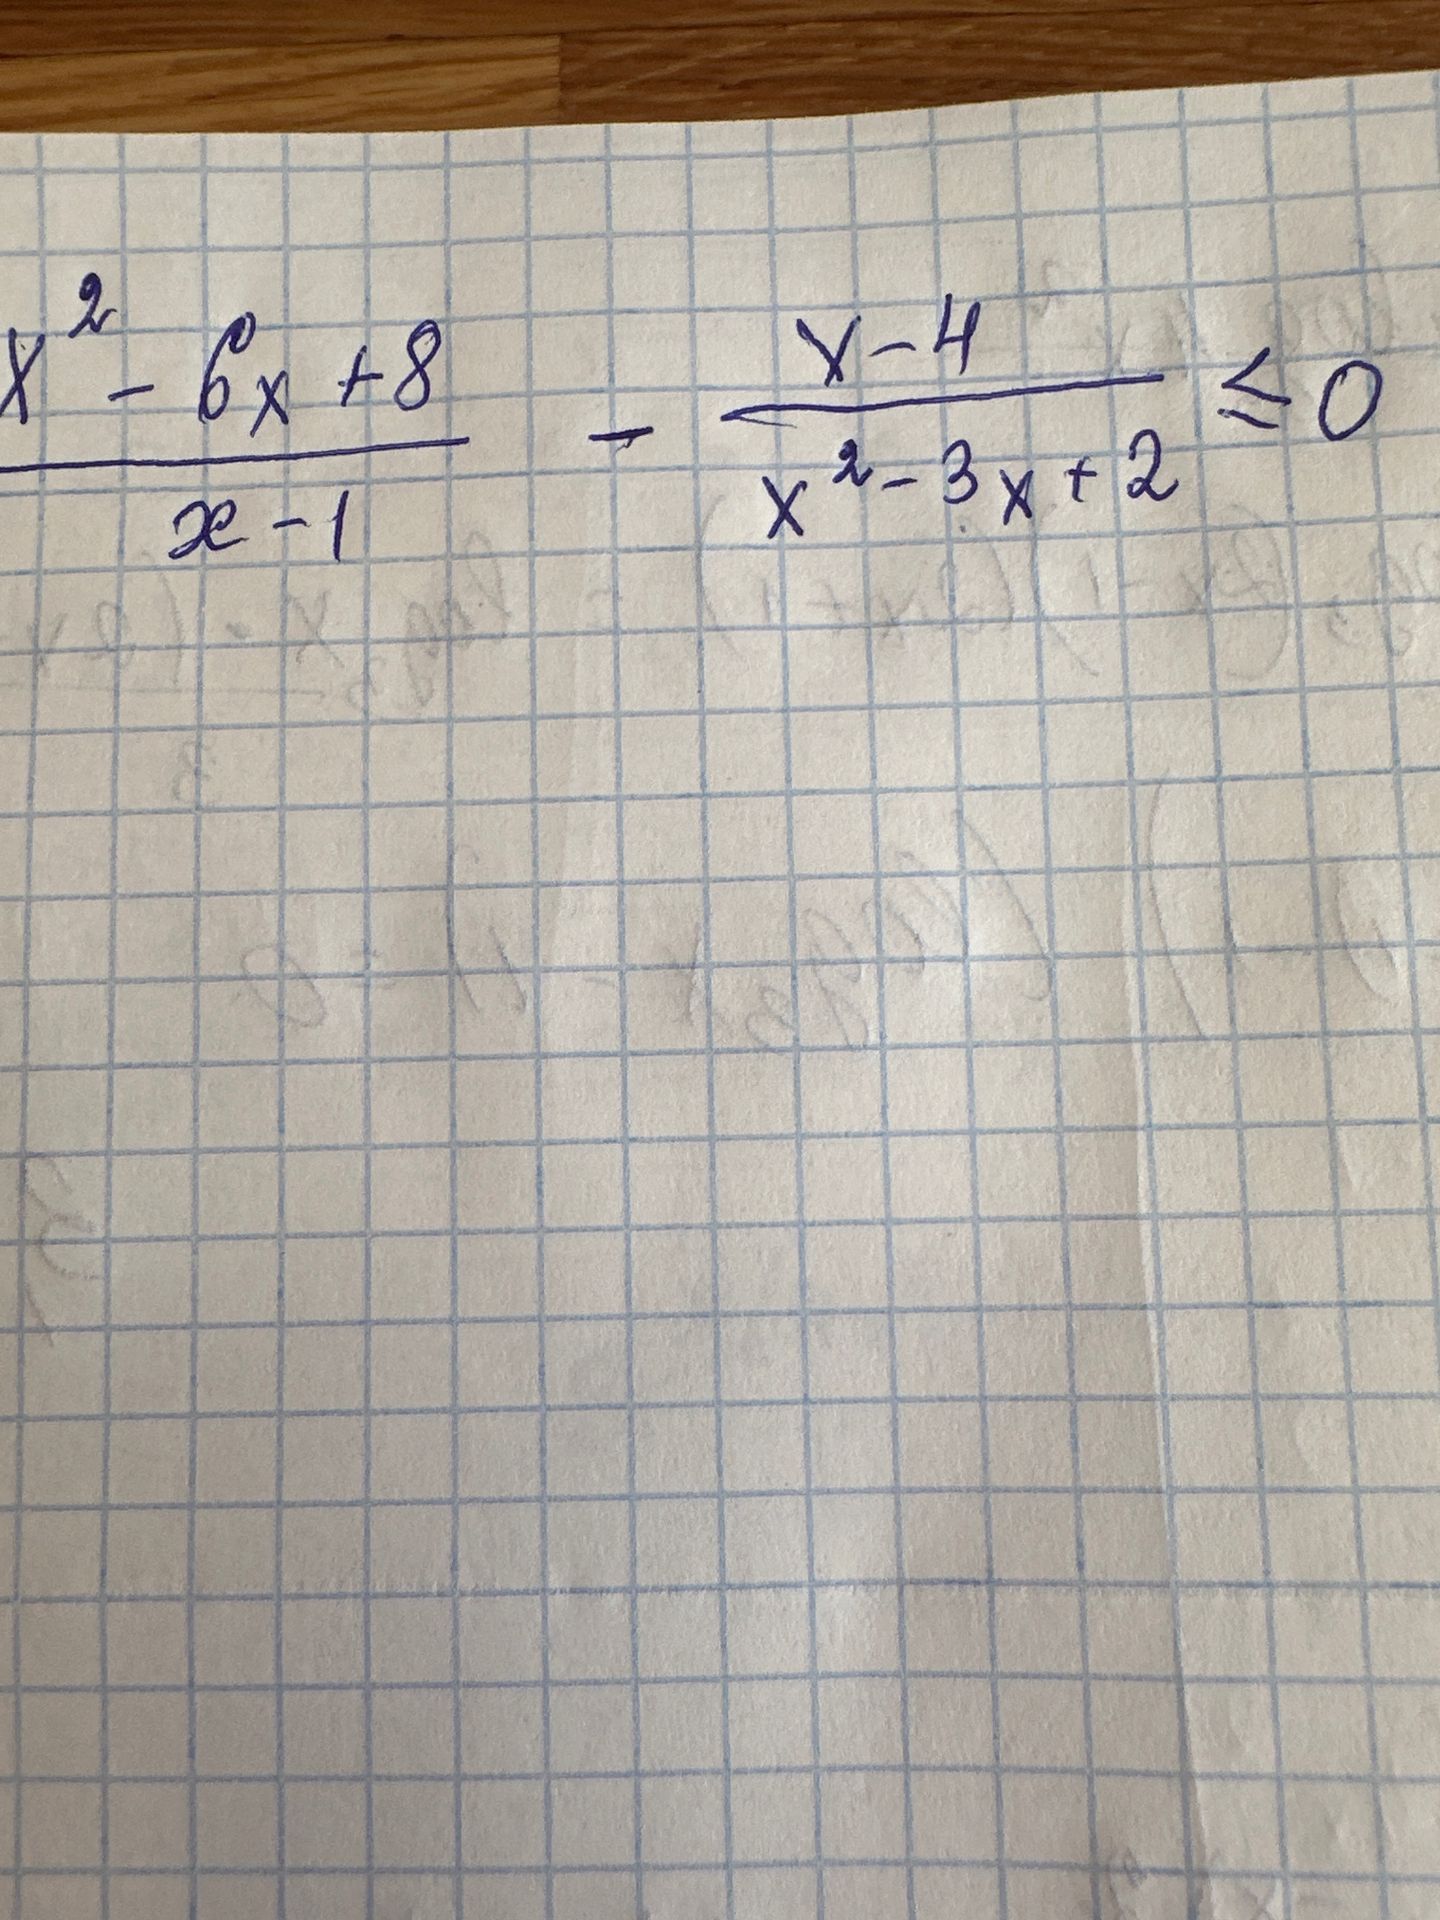 x² - 6x + 8 / x - 1 - x - 4 / x² - 3x + 2 ≤ 0